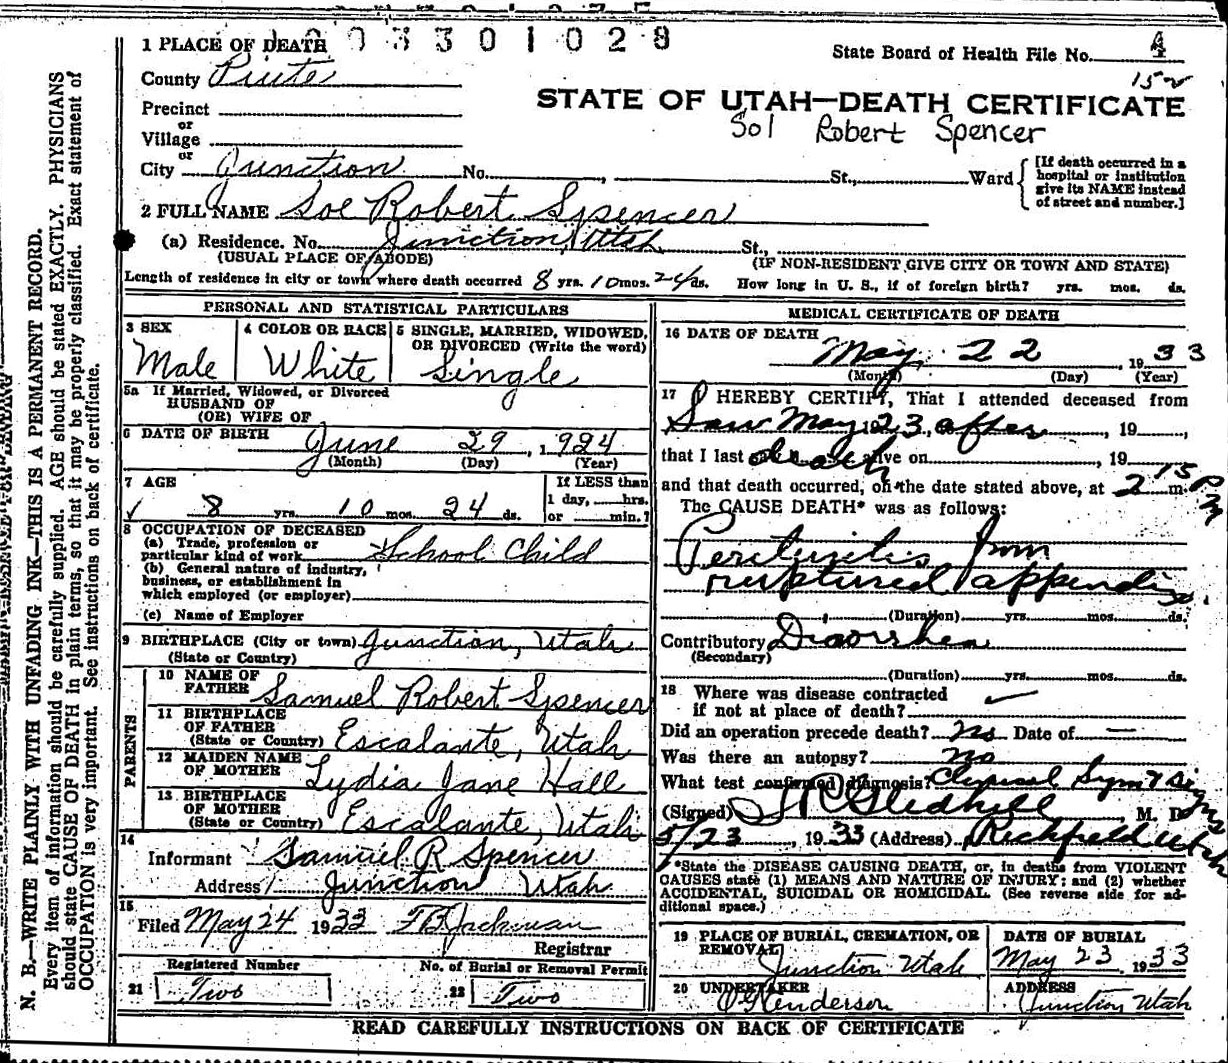 3 3 0 1 0 2 8
1 PLACE OF DEATH
State Board of Health File No. 4
County Piute
152
STATE OF UTAH—DEATH CERTIFICATE
Precinct
or
Village
Sol Robert Spencer
or
City Junction No. , St., Ward
[If death occurred in a
hospital or institution
give its NAME instead
of street and number.]
2 FULL NAME Soe Robert Spencer
(a) Residence. No. Junction, Utah St.,
(USUAL PLACE OF ABODE) (IF NON-RESIDENT GIVE CITY OR TOWN AND STATE)
Length of residence in city or town where death occurred 8 yrs. 10 mos. 24 ds. How long in U. S., if of foreign birth? yrs. mos. ds.
PERSONAL AND STATISTICAL PARTICULARS
3 SEX
Male
4 COLOR OR RACE
White
5 SINGLE, MARRIED, WIDOWED,
OR DIVORCED (Write the word)
Single
5a If Married, Widowed, or Divorced
HUSBAND OF
(OR) WIFE OF
6 DATE OF BIRTH June 29, 1924
(Month) (Day) (Year)
7 AGE
8 yrs. 10 mos. 24 ds.
If LESS than
1 day, hrs.
or min.?
8 OCCUPATION OF DECEASED
(a) Trade, profession or
particular kind of work School Child
(b) General nature of industry,
business, or establishment in
which employed (or employer)
(c) Name of Employer
9 BIRTHPLACE (City or town) Junction, Utah
(State or Country)
PARENTS
10 NAME OF
FATHER Samuel Robert Spencer
11 BIRTHPLACE
OF FATHER
(State or Country) Escalante, Utah
12 MAIDEN NAME
OF MOTHER Lydia Jane Hall
13 BIRTHPLACE
OF MOTHER
(State or Country) Escalante, Utah
14
Informant Samuel R Spencer
Address Junction Utah
15
Filed May 24 1933
Registrar
Registered Number
21 Two
No. of Burial or Removal Permit
22 Two
MEDICAL CERTIFICATE OF DEATH
16 DATE OF DEATH
May 22, 1933
(Month) (Day) (Year)
17 I HEREBY CERTIFY, That I attended deceased from
Saw May 23, after, 19 ,
that I last death alive on , 19
and that death occurred, on the date stated above, at 2 15 P m.
The CAUSE DEATH* was as follows:
Peritonitis from
ruptured appendix.
(Duration) yrs. mos. ds.
Contributory Diaorrhea
(Secondary)
(Duration) yrs. mos. ds.
18 Where was disease contracted
if not at place of death?
Did an operation precede death? No Date of —
Was there an autopsy? No
What test confirmed diagnosis? Clinical Sym & Signs
(Signed) Gledhill M. D.
5/23, 1933 (Address) Richfield Utah
*State the DISEASE CAUSING DEATH, or, in deaths from VIOLENT
CAUSES state (1) MEANS AND NATURE OF INJURY; and (2) whether
ACCIDENTAL, SUICIDAL OR HOMICIDAL. (See reverse side for ad-
ditional space.)
19 PLACE OF BURIAL, CREMATION, OR
REMOVAL
Junction Utah
DATE OF BURIAL
May 23 1933
20 UNDERTAKER
Henderson
ADDRESS
Junction Utah
READ CAREFULLY INSTRUCTIONS ON BACK OF CERTIFICATE
N. B.—WRITE PLAINLY WITH UNFADING INK—THIS IS A PERMANENT RECORD.
Every item of information should be carefully supplied. AGE should be stated EXACTLY. PHYSICIANS
should state CAUSE OF DEATH in plain terms, so that it may be properly classified. Exact statement of
OCCUPATION is very important. See instructions on back of certificate.